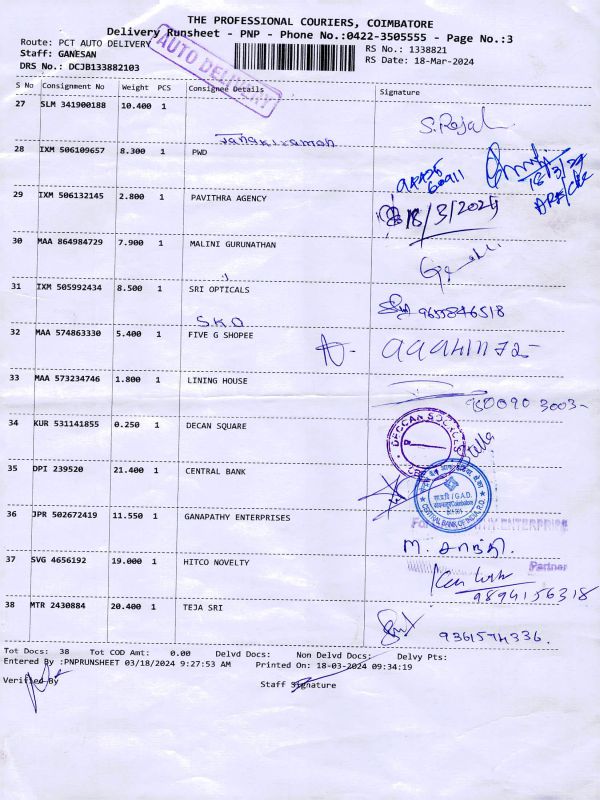 THE PROFESSIONAL COURIERS, COIMBATORE
Delivery Runsheet - PNP - Phone No.:0422-3505555 - Page No.:3
Route: PCT AUTO DELIVERY
RS No.: 1338821
Staff: GANESAN
RS Date: 18-Mar-2024
DRS No.: DCJB133882103
AUTO DELIVERY
S No Consignment No Weight PCS Consignee Details Signature
27 SLM 341900188 10.400 1
Janakiraman
S. Rajah
28 IXM 506109657 8.300 1 PWD
18/3/24
29 IXM 506132145 2.800 1 PAVITHRA AGENCY
18/3/2024
30 MAA 864984729 7.900 1 MALINI GURUNATHAN
31 IXM 505992434 8.500 1 SRI OPTICALS
9655846518
S.K.O
32 MAA 574863330 5.400 1 FIVE G SHOPEE
33 MAA 573234746 1.800 1 LINING HOUSE
34 KUR 531141855 0.250 1 DECAN SQUARE
35 DPI 239520 21.400 1 CENTRAL BANK
CENTRAL BANK OF INDIA, R.O.
36 JPR 502672419 11.550 1 GANAPATHY ENTERPRISES
Partner
37 SVG 4656192 19.000 1 HITCO NOVELTY
9894156318
38 MTR 2430884 20.400 1 TEJA SRI
9361574336.
Tot Docs: 38 Tot COD Amt: 0.00 Delvd Docs: Non Delvd Docs: Delvy Pts:
Entered By :PNPRUNSHEET 03/18/2024 9:27:53 AM Printed On: 18-03-2024 09:34:19
Verified By
Staff Signature